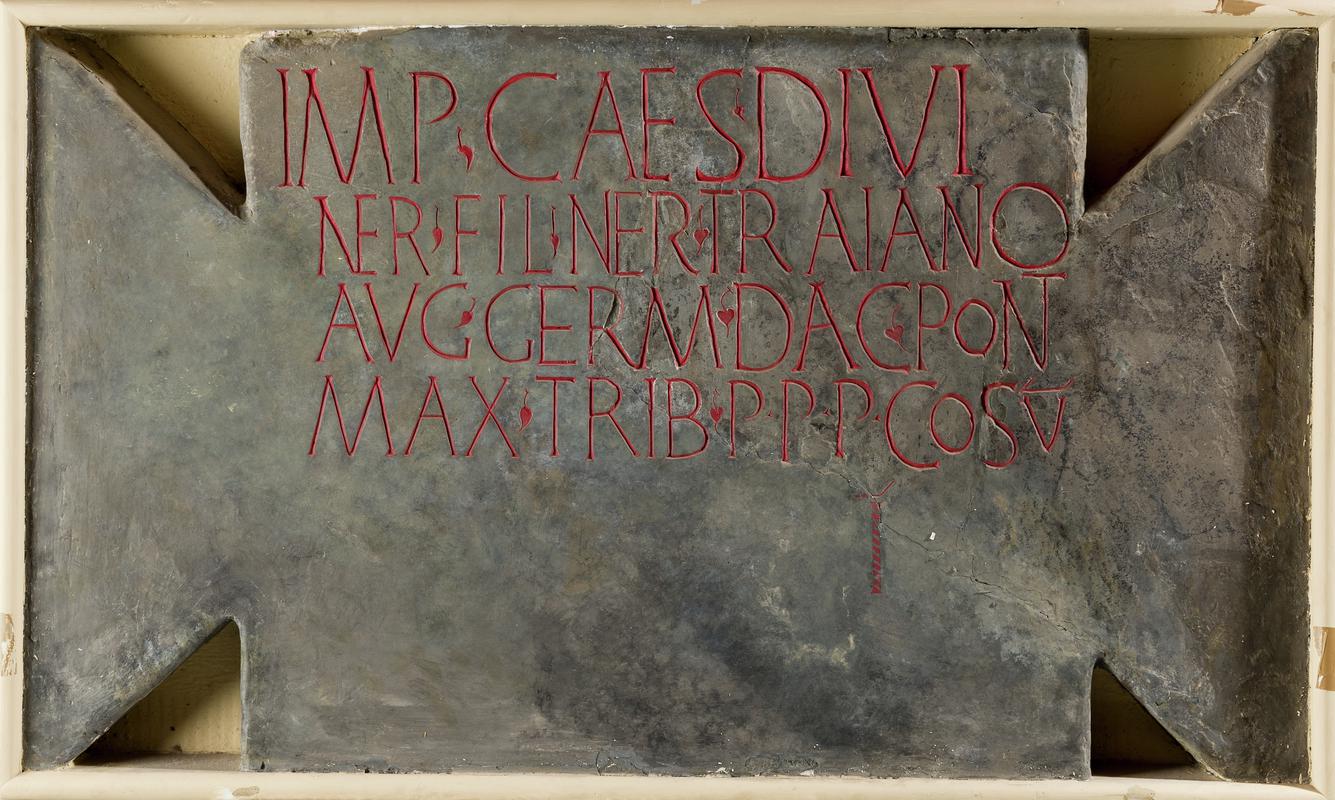 IMP CAES DIVI
NER FIL NER TRAIANO
AVG GERM DAC PON
MAX TRIB P P P COS V